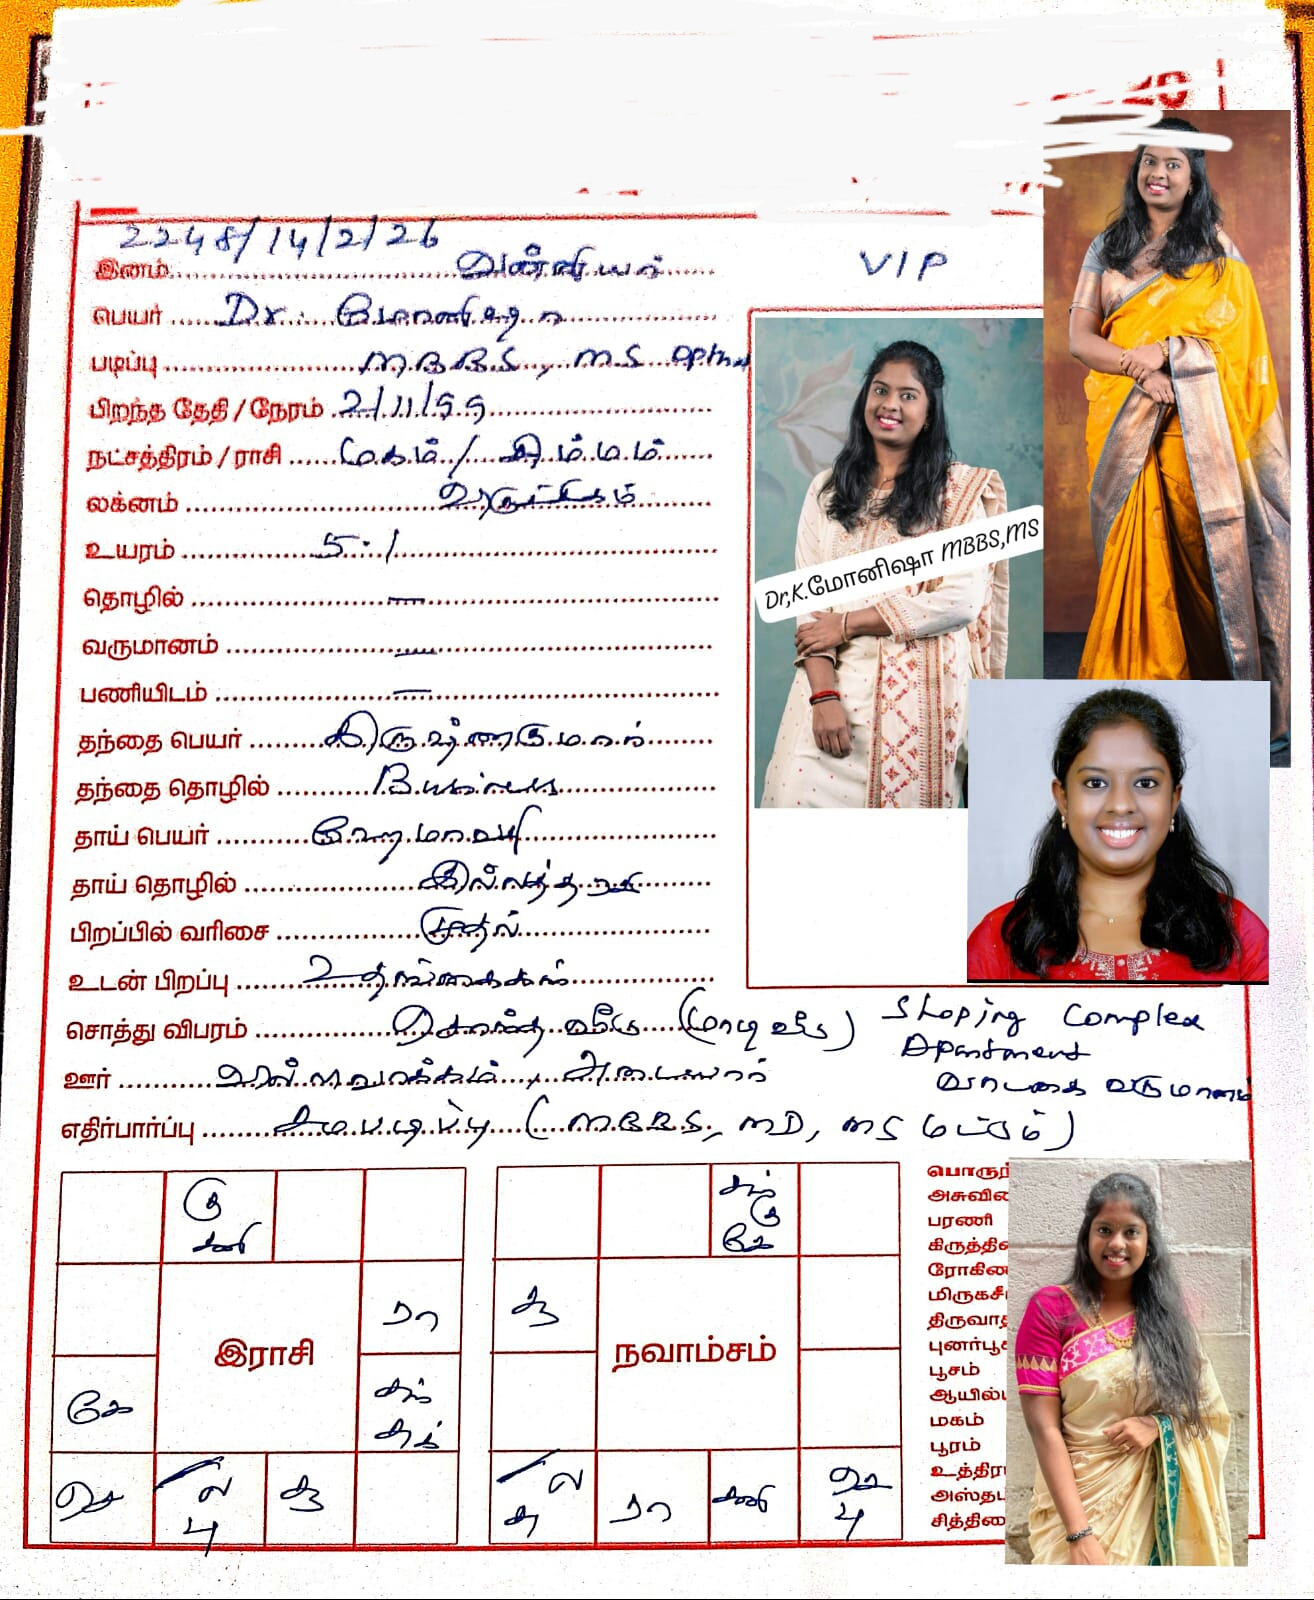 2248/14/2/26
இனம் வன்னியர்
VIP
பெயர் Dr. மோனிஷா
படிப்பு M.B.B.S, MS Opthal
பிறந்த தேதி / நேரம் 2/11/99
நட்சத்திரம் / ராசி மகம் / சிம்மம்
லக்னம் விருச்சிகம்
உயரம் 5.1
தொழில் —
வருமானம் —
பணியிடம் —
Dr,K.மோனிஷா MBBS,MS
தந்தை பெயர் கிருஷ்ணகுமார்
தந்தை தொழில் Business
தாய் பெயர் ஹேமாவதி
தாய் தொழில் இல்லத்தரசி
பிறப்பில் வரிசை முதல்
உடன் பிறப்பு 2 தங்கைகள்
சொத்து விபரம் சொந்த வீடு (மாடி வீடு) Shoping Complex
Apartment
வாடகை வருமானம்
ஊர் அடையார்
எதிர்பார்ப்பு சமபடிப்பு (MBBS, MD, MS மட்டும்)
கு
சனி
ரா
கே
சந்
சுக்
செ
ல
பு
சூ
இராசி
சந்
கு
கே
சூ
நவாம்சம்
ல
சு
ரா
சனி
செ
பு
பொருந்
அசுவி
பரணி
கிருத்தி
ரோகிண
மிருகசீ
திருவா
புனர்பூ
பூசம்
ஆயில்
மகம்
பூரம்
உத்திர
அஸ்த
சித்திரை